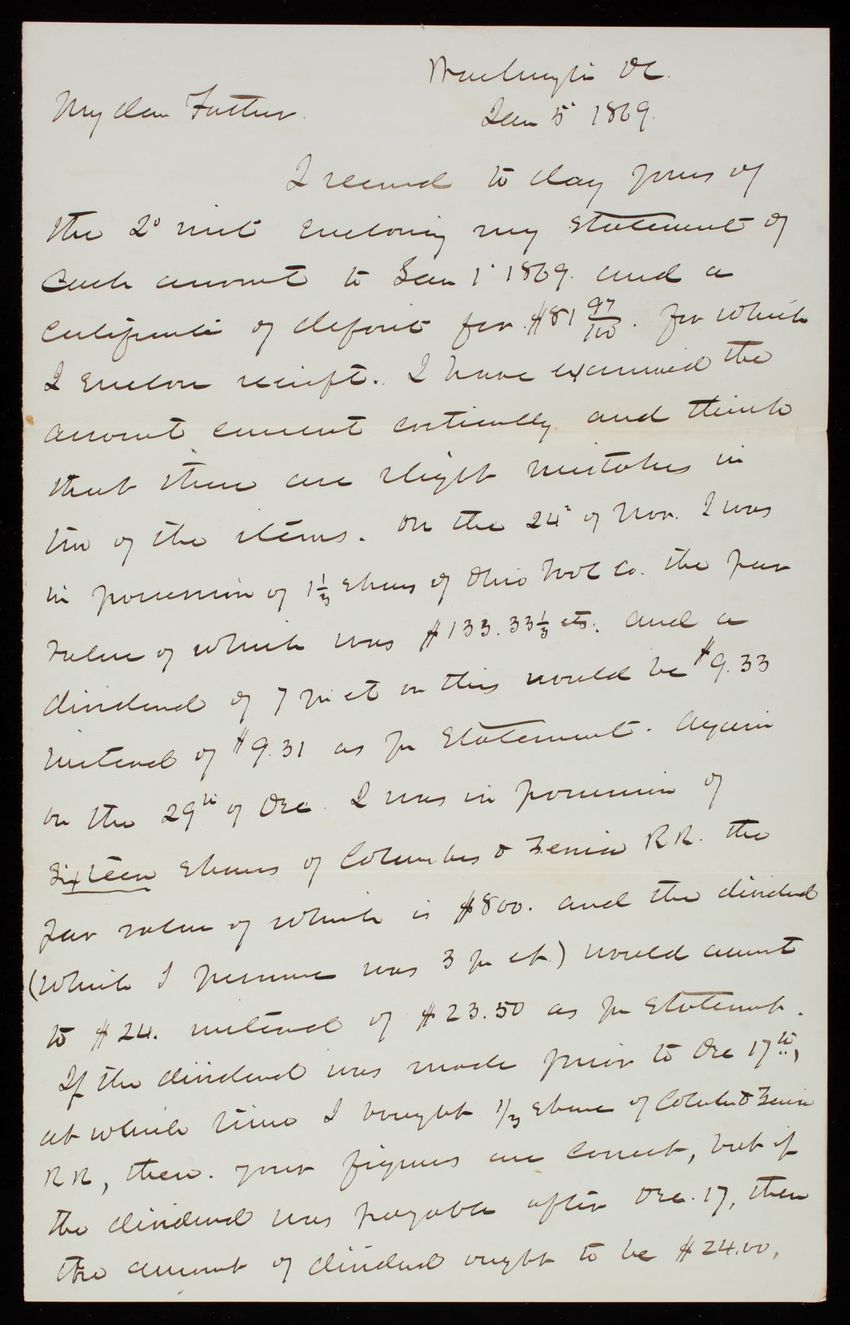 Washington DC.
My dear Father. Jan 5" 1869.
I received to day yours of
the 2d inst enclosing my statement of
cash account to Jan 1" 1869. and a
certificate of deposit for $81 97/100. for which
I enclose receipt. I have examined the
account current critically and think
that there are slight mistakes in
two of the items. On the 24" of Nov. I was
in possession of 1 1/3 shares of Ohio Co. the par
value of which was $133.33 1/3 cts. and a
dividend of 7 pr ct on this would be $9.33
instead of $9.31 as pr statement. Again
on the 29th of Dec. I was in possession of
Sixteen shares of Columbus & Xenia R R. the
par value of which is $800. and the dividend
(which I presume was 3 pr ct) would amount
to $24. instead of $23.50 as pr statement.
If the dividend was made prior to Dec 17th,
at which time I bought 1/3 share of Columbus & Xenia
R R, then. your figures are correct, but if
the dividend was payable after Dec. 17, then
the amount of dividend ought to be $24.00.